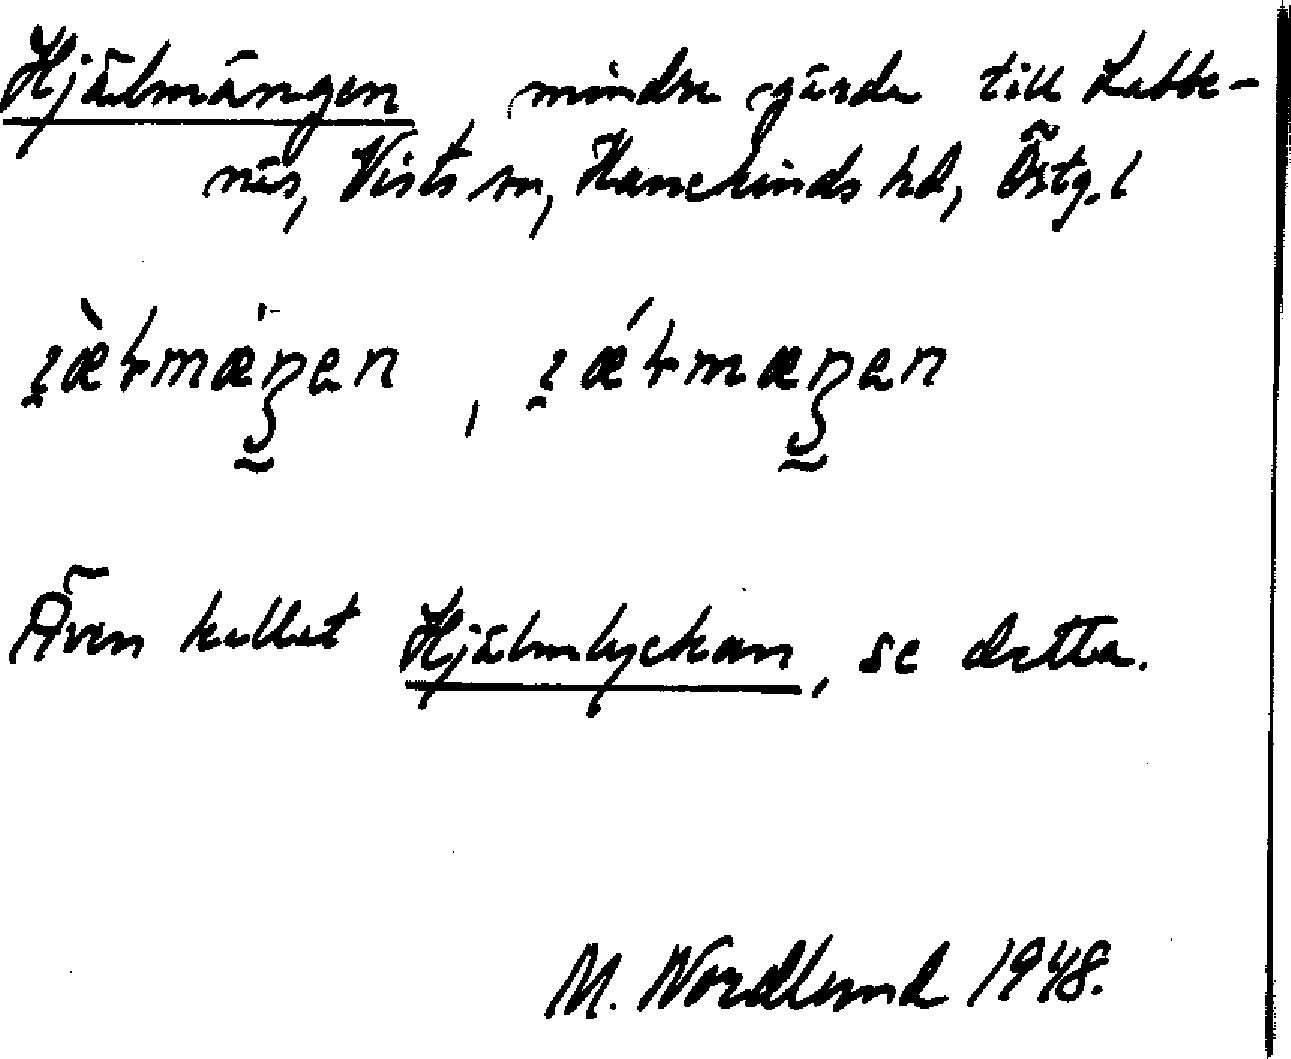 Hjälmängen, mindre gärde till Labbe-
näs, Vists sn, Hanekinds hd, Östg. l
Även kallat Hjälmlyckan, se detta.
M. Nordlund 1948.